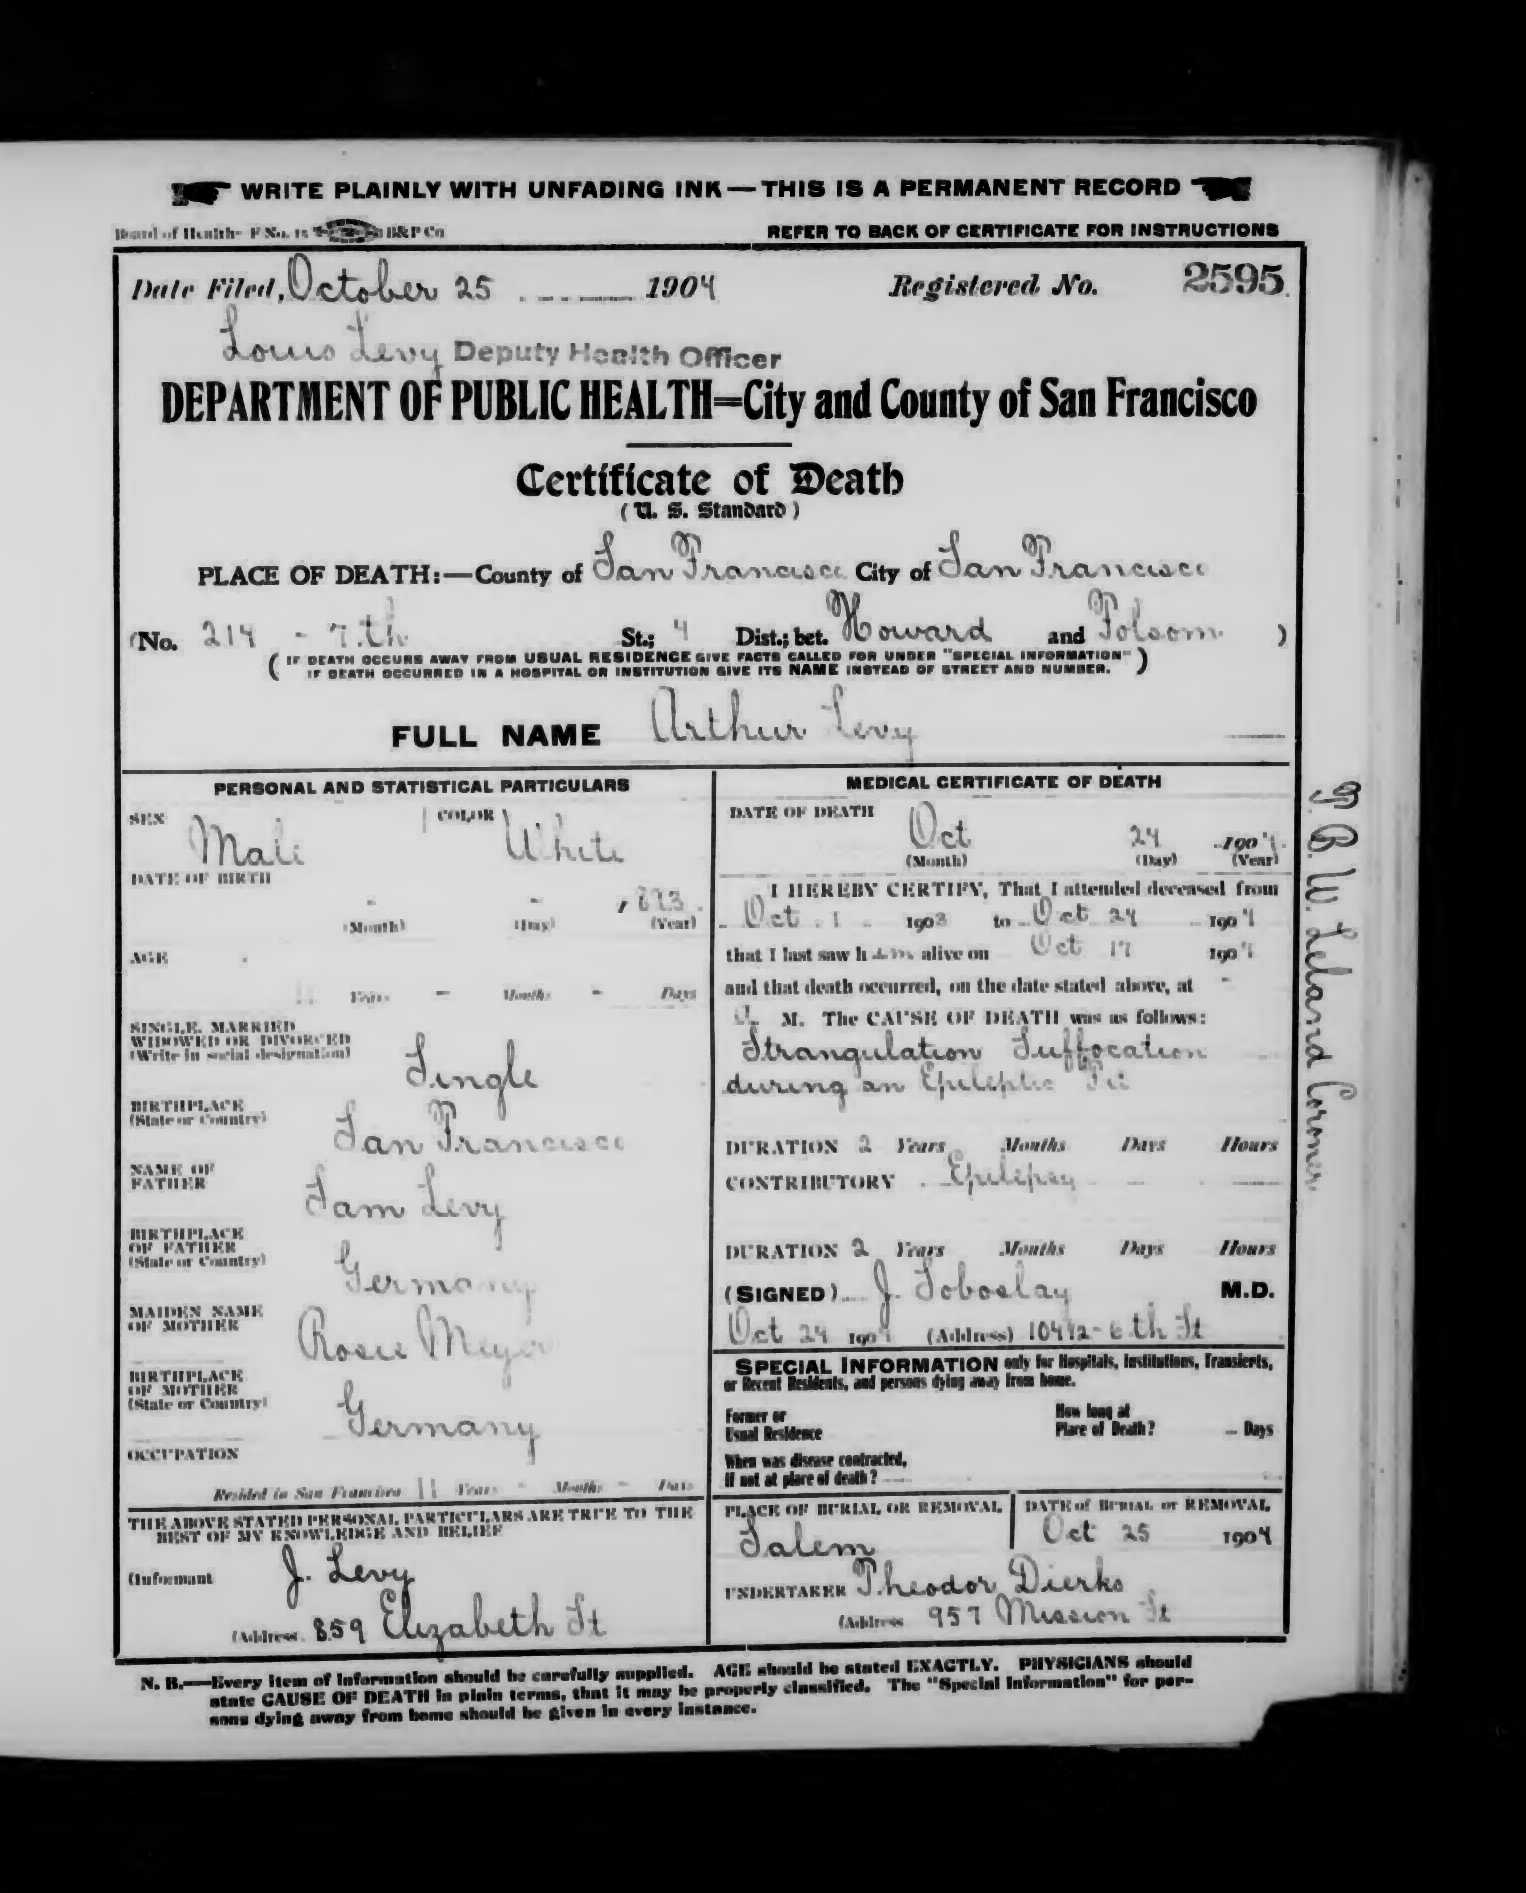 WRITE PLAINLY WITH UNFADING INK — THIS IS A PERMANENT RECORD
Board of Health- F No. 15 B&P Co
REFER TO BACK OF CERTIFICATE FOR INSTRUCTIONS
Date Filed, October 25 1904 Registered No. 2595
Louis Levy Deputy Health Officer
DEPARTMENT OF PUBLIC HEALTH=City and County of San Francisco
Certificate of Death
(U. S. Standard)
PLACE OF DEATH:—County of San Francisco City of San Francisco
(No. 214 - 7.th St.; 4 Dist.; bet. Howard and Folsom )
( IF DEATH OCCURS AWAY FROM USUAL RESIDENCE GIVE FACTS CALLED FOR UNDER "SPECIAL INFORMATION" )
IF DEATH OCCURRED IN A HOSPITAL OR INSTITUTION GIVE ITS NAME INSTEAD OF STREET AND NUMBER.
FULL NAME Arthur Levy
PERSONAL AND STATISTICAL PARTICULARS
SEX Male COLOR White
DATE OF BIRTH
- - , 893
(Month) (Day) (Year)
AGE
11 Years - Months - Days
SINGLE, MARRIED
WIDOWED OR DIVORCED
(Write in social designation)
Single
BIRTHPLACE
(State or Country)
San Francisco
NAME OF
FATHER
Sam Levy
BIRTHPLACE
OF FATHER
(State or Country)
Germany
MAIDEN NAME
OF MOTHER
Rosie Meyer
BIRTHPLACE
OF MOTHER
(State or Country)
Germany
OCCUPATION
Resided in San Francisco 11 Years - Months - Days
THE ABOVE STATED PERSONAL PARTICULARS ARE TRUE TO THE
BEST OF MY KNOWLEDGE AND BELIEF
(Informant J. Levy
(Address. 859 Elizabeth St
MEDICAL CERTIFICATE OF DEATH
DATE OF DEATH
Oct 24 1904
(Month) (Day) (Year)
I HEREBY CERTIFY, That I attended deceased from
Oct. 1 1903 to Oct 24 1904
that I last saw him alive on Oct 17 1904
and that death occurred, on the date stated above, at -
a. M. The CAUSE OF DEATH was as follows:
Strangulation Suffocation
during an Epileptic Fit
DURATION 2 Years Months Days Hours
CONTRIBUTORY Epilepsy
DURATION 2 Years Months Days Hours
(SIGNED) J. Soboslay M.D.
Oct 24 1904 (Address) 104 1/2 - 6th St
SPECIAL INFORMATION only for Hospitals, Institutions, Transients,
or Recent Residents, and persons dying away from home.
Former or
Usual Residence
How long at
Place of Death? Days
When was disease contracted,
If not at place of death?
PLACE OF BURIAL OR REMOVAL
Salem
DATE of BURIAL or REMOVAL
Oct 25 1904
UNDERTAKER Theodor Dierks
(Address 957 Mission St
N. B.—Every item of information should be carefully supplied. AGE should be stated EXACTLY. PHYSICIANS should
state CAUSE OF DEATH in plain terms, that it may be properly classified. The "Special Information" for per-
sons dying away from home should be given in every instance.
Leland Coroner.